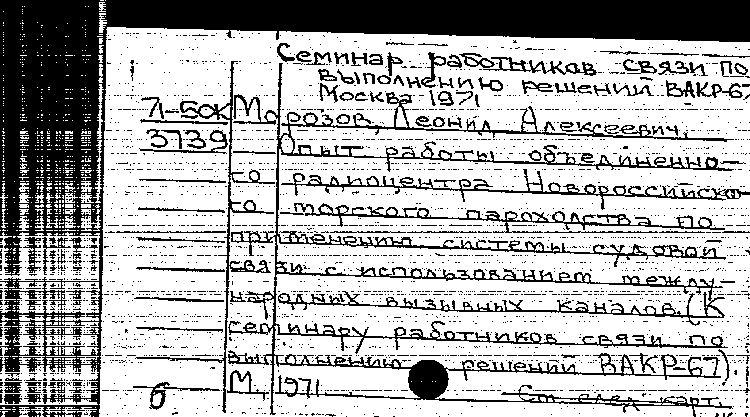 Семинар работников связи по
выполнению решений ВАКР-67
Москва 1971
71-50К Морозов, Леонид Алексеевич.
3739 Опыт работы объединенно-
го радиоцентра Новороссийско-
го морского пароходства по
применению системы судовой
связи с использованием между-
народных вызывных каналов. (К
семинару работников связи по
выполнению решений ВАКР-67).
б М., 1971
См. след. карт.